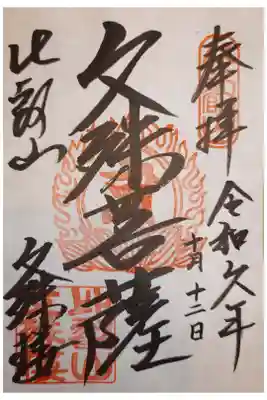 奉拝
令和六年
十月十二日
文殊菩薩
比叡山
文殊楼